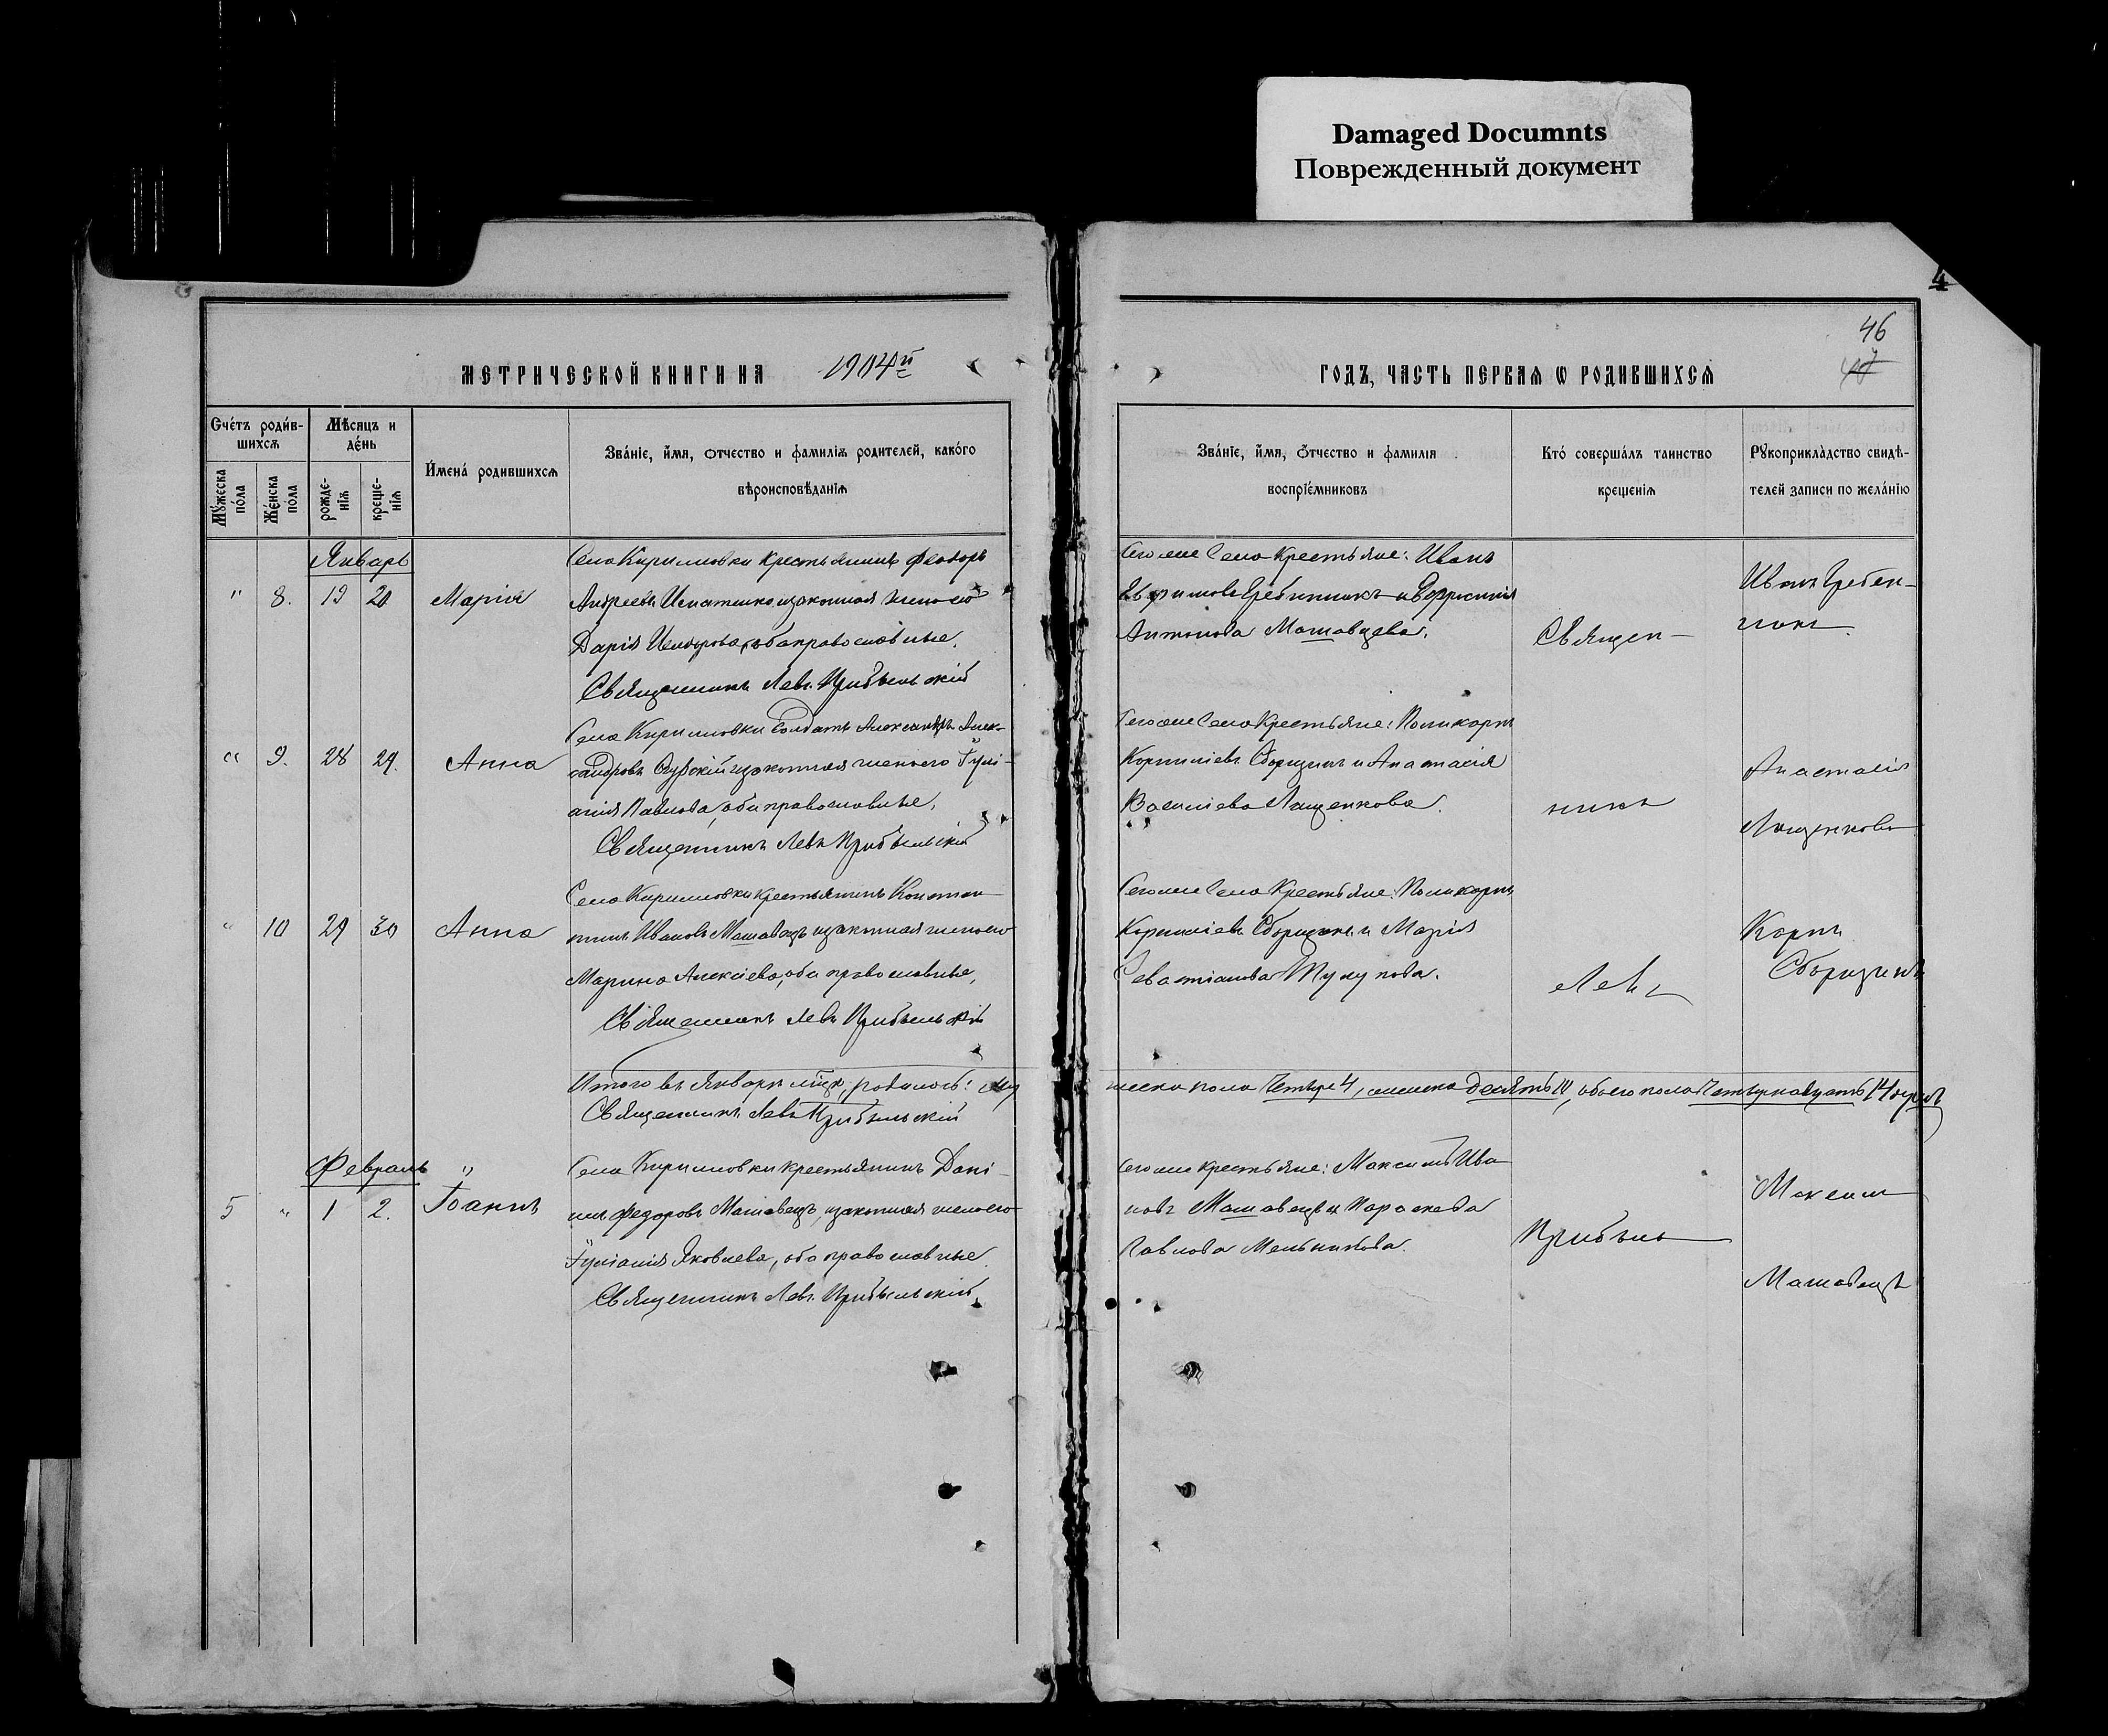 Damaged Documnts
Поврежденный документ
4
46
МЕТРИЧЕСКОЙ КНИГИ НА 1904й
ГОДЪ, ЧАСТЬ ПЕРВАЯ Ѡ РОДИВШИХСѦ
Счéтъ роди́в-
шихсѧ
Мѣсяцъ и
дéнь
Мꙋжеска
пóла
Жéнска
пóла
рожде-
нїѧ
креще-
нїѧ
И҆мена́ родившихсѧ
Зва́нїе, и҆́мя, ѻ҆тчество и фамилїѧ родителей, како́го
вѣроисповѣ́данїѧ
Зва́нїе, и҆́мя, ѻ҆́тчество и фамилїя
воспрїе́мниковъ
Кто́ соверша́лъ таинство
крещенїѧ
Рꙋкоприкла̀дство свидѣ-
телей записи по жела́нїю
Январь
" 8. 19 20 Марія
Села Кирилловки крестьянинъ Феодоръ
Андреевъ Игнатенко, и законная жена его
Дарія, оба православные.
Священникъ Левъ Прибыльскій
Того же Села Крестьяне: Иванъ
Гребинникъ и Евфросинія
Антонова Машавцева.
Священ-
Иванъ Гребен-
никъ.
" 9. 28 29. Анна
Села Кирилловки Солдатъ Александръ Алек-
сандровъ и законная жена его Іулі-
анія Павлова, оба православные.
Священникъ Левъ Прибыльскій
Того же Села Крестьяне: Поликарпъ
Корниліевъ Сборщикъ и Анастасія
Василіева Лященкова.
никъ
Анастасія
Лященкова
" 10 29 30 Анна
Села Кирилловки крестьянинъ Констан-
тинъ Ивановъ Машавецъ и законная жена его
Марина Алексіева, оба православные,
Священникъ Левъ Прибыльскій
Того же Села Крестьяне: Поликарпъ
Корниліевъ Сборщикъ и Марія
Севастіанова
Левъ
Карпъ
Сборщикъ
Итого въ Январѣ мцѣ, родилось: му
жеска пола Четыре 4, женска десять 10, обоего пола Четырнадцать 14 душъ
Священникъ Левъ Прибыльскій
Февраль "
5 " 1 2. Іоаннъ
Села Кирилловки крестьянинъ Дані-
илъ Федоровъ Машавецъ, и законная жена его
Іуліанія Яковлева, оба православные.
Священникъ Левъ Прибыльскій.
Того же крестьяне: Максимъ Ива
новъ Машавецъ и Параскева
Павлова Мельникова.
Прибыль
Максим
Машавецъ